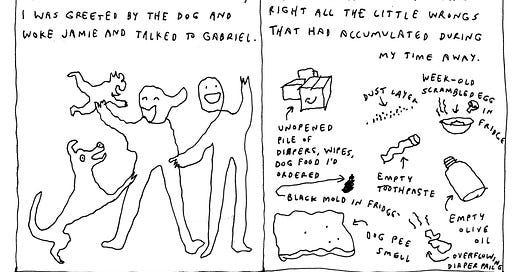 I WAS GREETED BY THE DOG AND
WOKE JAMIE AND TALKED TO GABRIEL.
RIGHT ALL THE LITTLE WRONGS
THAT HAD ACCUMULATED DURING
MY TIME AWAY.
UNOPENED
PILE OF
DIAPERS, WIPES,
DOG FOOD I'D
ORDERED
DUST LAYER
WEEK-OLD
SCRAMBLED EGG
IN
FRIDGE
EMPTY
TOOTHPASTE
BLACK MOLD IN FRIDGE
EMPTY
OLIVE
OIL
DOG PEE
SMELL
OVERFLOWING
DIAPER PAIL